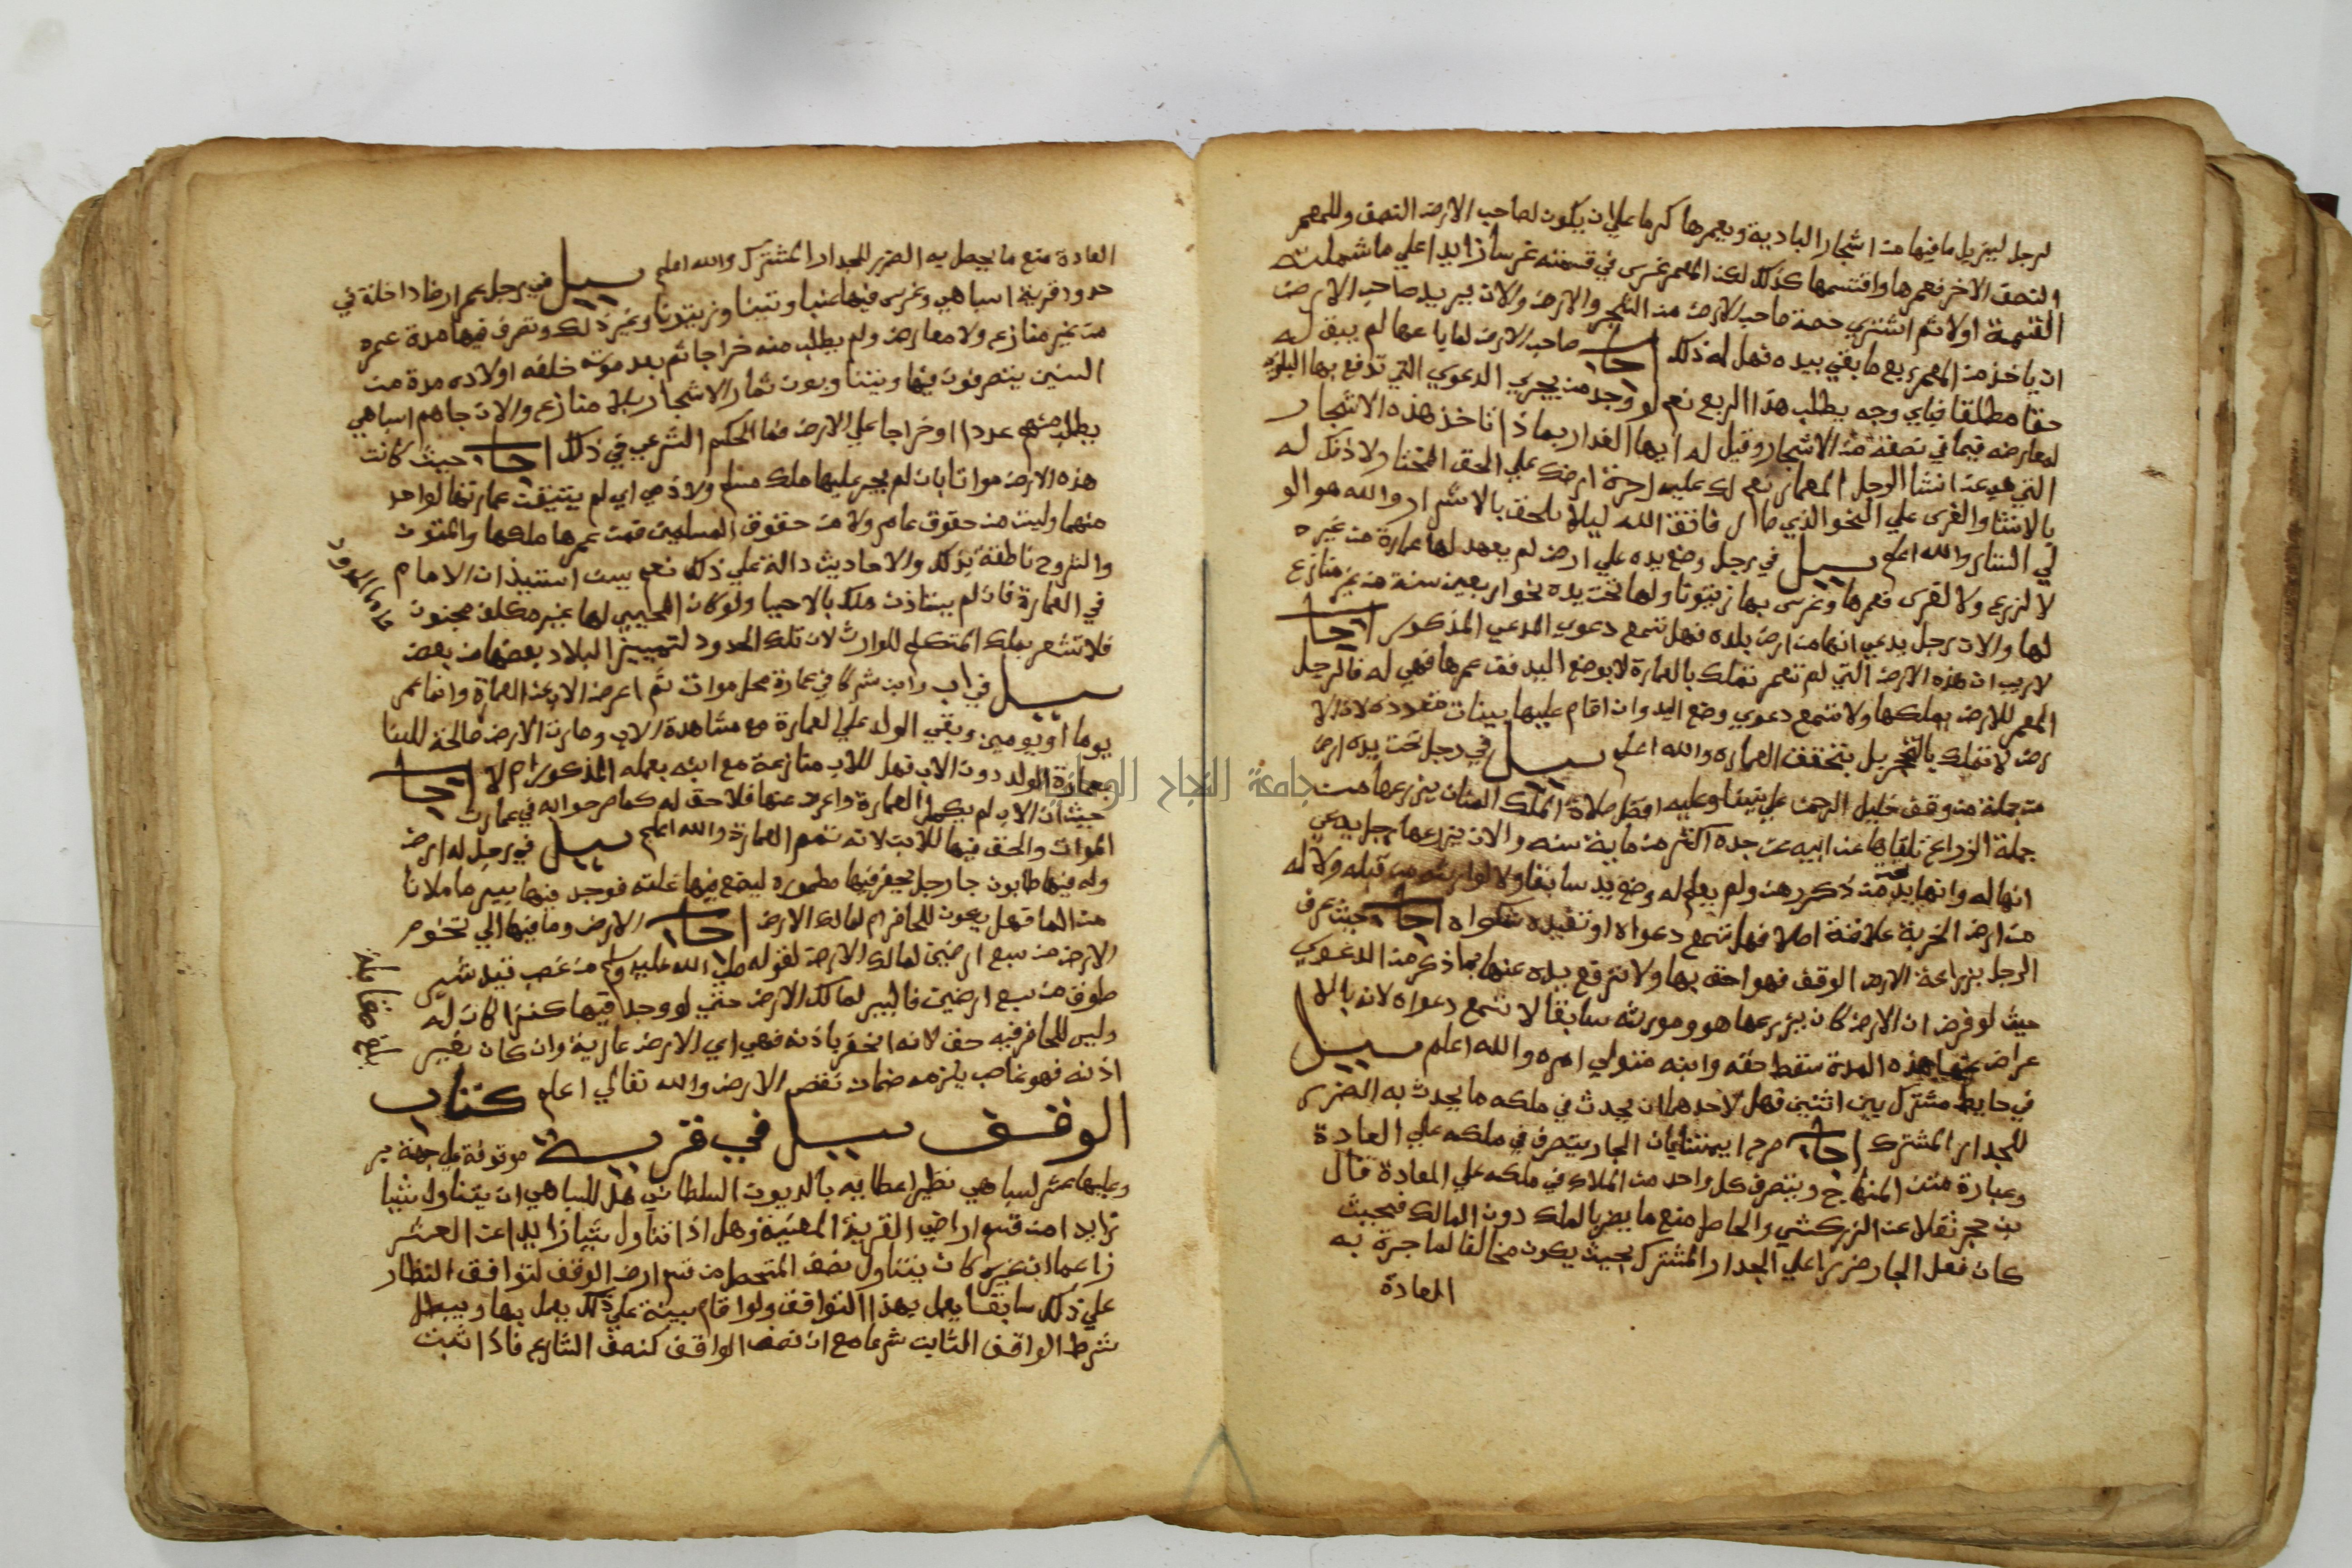 لرجل ليزيل ما فيها من اشجار البادية ويعمرها كرما علي ان يكون لصاحب الارض النصف وللمعمر
النصف الاخر فعمرها واقتسمها كذلك لكن المعمر غرس في قسمته غرسا زايدا علي ما شملته
القسمة اولا ثم اشتري حصة صاحب الارض من الشجر والارض والان يريد صاحب الارض
ان ياخذ من المعمر ربع ما بقي بيده فهل له ذلك اجاب صاحب الارض لما باعها لم يبق له
حقا مطلقا فباي وجه يطلب هذا الربع نعم لو وجد من يجري الدعوي التي تدفع بها البلوي
لعارضه فيما في نصفه من الاشجار وقيل له ايها الغدار بماذا تاخذ هذه الاشجار
التي هي عن انشا الرجل المعمار نعم لك عليه اجرة ارضك علي الحق المختار ولا ذنك له
بالانشا والغرس علي النحو الذي صار فاتق الله ليلا تلحق بالاشرار والله هو الو
لي الستار والله اعلم سيل في رجل وضع يده علي ارض لم يعهد لها عمارة من غيره
لا لزرع ولا لغرس فعمرها وغرس بها زيتونا ولها تحت يده نحو اربعين سنة من غير منازع
لها والان رجل يدعي انها من ارض بلده فهل تسمع دعوي المدعي المذكور اجاب
لا ريب ان هذه الارض التي لم تعمر تملك بالعمارة لا بوضع اليد فمن عمرها فهي له فالرجل
المعمر للارض يملكها ولا تسمع دعوي وضع اليد وان اقام عليها بينات متعددة لان الا
رض لا تملك بالتحجر بل بتحقق العمارة والله اعلم سيل في رجل تحت يده ارض
من جملة من وقف خليل الرحمن علي نبينا وعليه افضل صلاة الملك المنان يزرعها من
جملة الزراع تلقاها عن ابيه عن جده اكثر من ماية سنه والان يزرعها رجل يدعي
انها له وانها بيد من ذكر رهن ولم يعلم له وضع يد سابقا ولا لوارثه من قبله ولا له
من ارض الخربة علاقة اصلا فهل تسمع دعواه او تفيده شكواه اجاب حيث عرف
الرجل بزراعة الارض الوقف فهو احق بها ولا ترفع يده عنها بما ذكر من الدعوي
حيث لو فرض ان الارض كان يزرعها هو ومورثه سابقا لا تسمع دعواه لانه بالا
عراض عنها هذه المدة سقط حقه وابنه متولي امره والله اعلم سيل
في حايط مشترك بين اثنين فهل لاحدهما ان يحدث في ملكه ما يحدث به الضرر
للجدار المشترك اجاب صرح ايمتنا بان الجار يتصرف في ملكه علي العادة
وعبارة متن المنهاج ويتصرف كل واحد من الملاك في ملكه علي العادة قال
بن حجر نقلا عن الزركشي والحاصل منع ما يضر بالملك دون المالك فحيث
كان فعل الجار ضررا علي الجدار المشترك بحيث يكون مخالفا لما جرة به
العادة
العادة منع ما يحصل به الضرر للجدار المشترك والله اعلم سيل في رجل عمر ارضا داخلة في
حدود قرية اسباهي وغرس فيها عنبا وتينا وزيتونا وغير ذلك وتصرف فيها مدة عمره
من غير منازع ولا معارض ولم يطلب منه خراجا ثم بعد موته خلفه اولاده مدة من
السنين يتصرفون فيها ويتناوبون ثمار الاشجار بلا منازع والان جاهم اسباهي
يطلب منهم عددا او خراجا علي الارض فما الحكم الشرعي في ذلك اجاب حيث كانت
هذه الارض مواتا بان لم يجر عليها ملك مسلم ولا ذمي اي لم يتيقن عمارتها لواحد
منهما وليست من حقوق عامر ولا من حقوق المسلمين فمن عمرها ملكها والمتون
والشروح ناطقة بذلك والاحاديث دالة علي ذلك نعم يسن استيذان الامام
في العمارة فان لم يستاذن ملك بالاحيا ولو كان المحيي لها غير مكلف مجنون
فلا تشعر بملك المتكلم للوارث لان تلك الحدود لتمييز البلاد بعضها من بعض
سيل في اب وابن شركا في عمارة محل موات ثم اعرض الاب عن العمارة وانما عمر
يوما او يومين وبقي الولد علي العمارة مع مشاهدة الاب وصارت الارض صالحة للبنا
بعمارة الولد دون الاب فهل للاب منازعة مع ابنه بعمله المذكور ام لا اجاب
حيث ان الاب لم يكمل العمارة واعرض عنها فلا حق له كما صرحوا به في عمارت
الموات والحق فيها للابن لانه تمم العمارة والله اعلم سيل في رجل له ارض
وله فيها طابون جا رجل يحفر فيها مطموره ليضع فيها غلته فوجد فيها بير ما ملانا
من الما فهل يكون للحافر ام لمالك الارض اجاب الارض وما فيها الي تخوم
الارض من سبع ارضين لمالك الارض لقوله صلي الله عليه وسلم من غصب قيد شبر
طوق من سبع ارضين فالبير لمالك الارض حتي لو وجد فيها كنزا كان له
وليس للحافر فيه حق لانه ان حفر باذنه فهي اي الارض عارية وان كان بغير
اذنه فهو غاصب يلزمه ضمان نقص الارض والله تعالي اعلم كتاب
الوقف سيل في قرية موقوفة علي جهة بر
وعليها عشر لسباهي نظير اعطائه بالديون السلطاني هل للسباهي ان يتناول شيا
زايدا من قسم اراضي القرية المعينة وهل اذا تناول شيا زايدا عن العشر
زاعما ان غيره كان يتناول نصف المتحصل من قسم ارض الوقف لتوافق النظار
علي ذلك سابقا يعمل بهذا التوافق ولو اقام بينة علي ذلك يعمل بها ويبطل
شرط الواقف الثابت شرعا مع ان نص الواقف كنص الشارع فاذا ثبت
جامعة النجاح